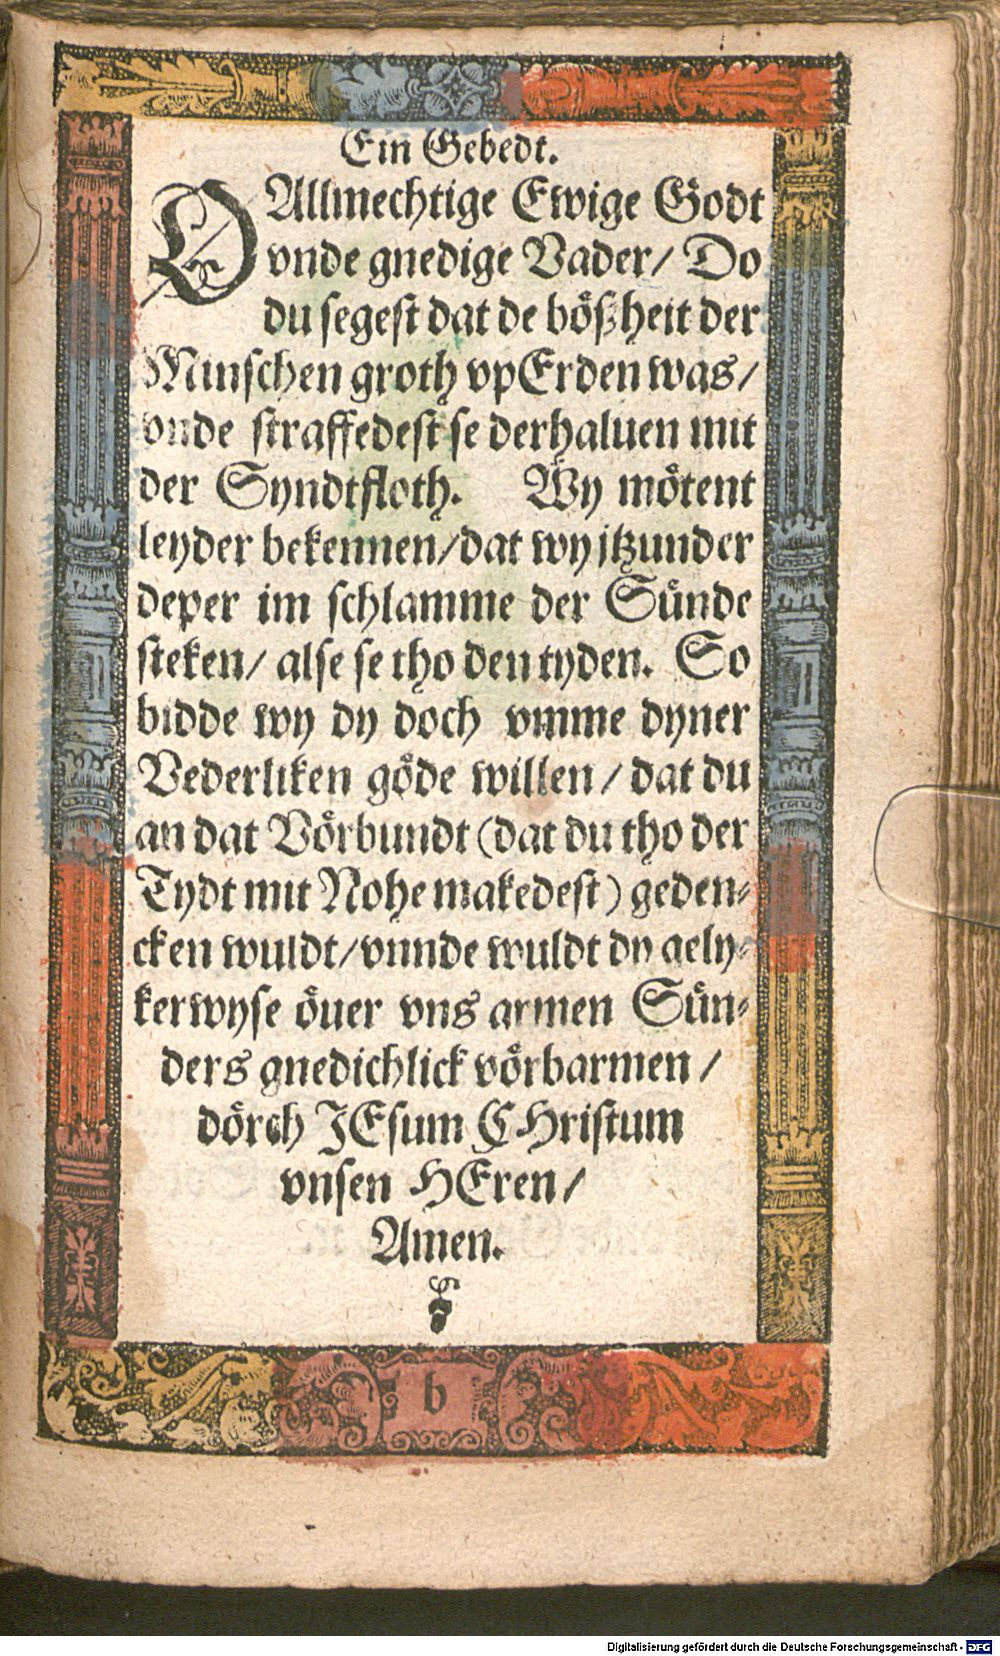 Ein Gebedt.
O Allmechtige Ewige Godt
vnde gnedige Vader/ Do
du segest dat de bößheit der
Minschen groth vp Erden was/
vnde straffedest se derhaluen mit
der Syndtfloth. Wy mötent
leyder bekennen/ dat wy jtzunder
deper im schlamme der Sünde
steken/ alse se tho den tyden. So
bidde wy dy doch vmme dyner
Vederliken göde willen/ dat du
an dat Vörbundt (dat du tho der
Tydt mit Nohe makedest) geden-
cken wuldt/ vnnde wuldt dy gely-
kerwyse öuer vns armen Sün-
ders gnedichlick vörbarmen/
dörch JEsum CHristum
vnsen HEren/
Amen.
b
Digitalisierung gefördert durch die Deutsche Forschungsgemeinschaft - DFG